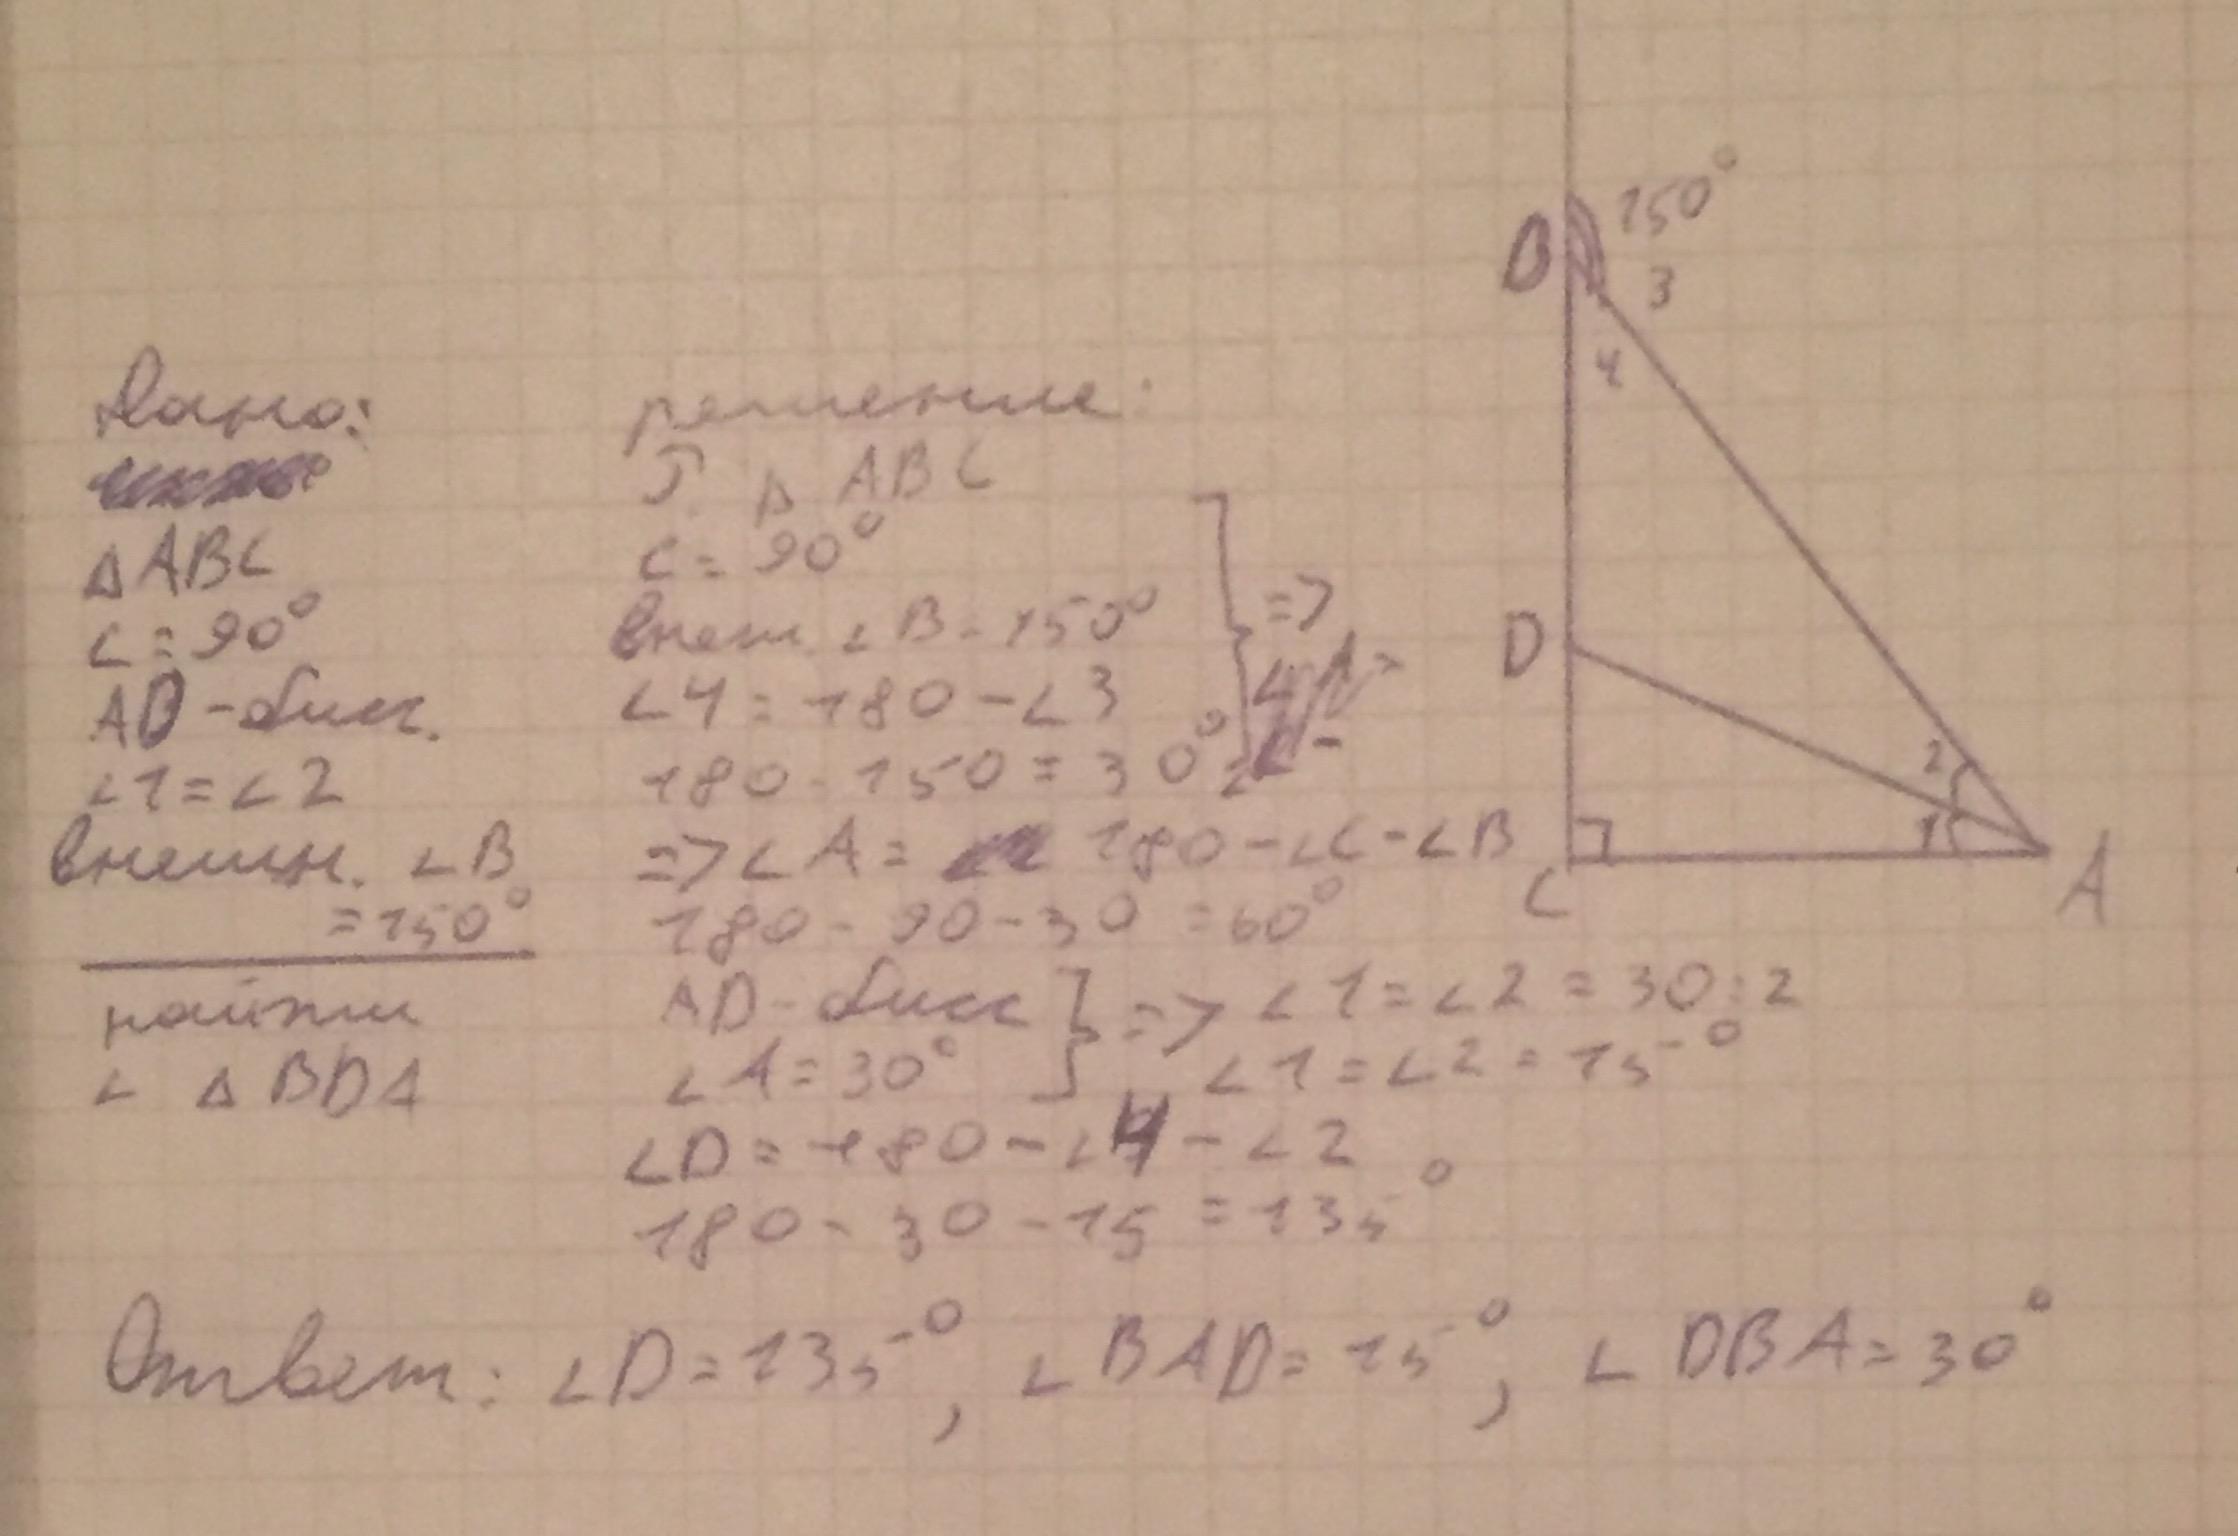 Дано:
△ABC
∠C=90°
AD-бисс.
∠1=∠2
внешн. ∠B
=150°
найти
∠ △BDA
решение:
△ABC
C=90°
внеш. ∠B=150°
∠4=180-∠3
180-150=30°
=>
=>∠A= 180-∠C-∠B
180-90-30=60°
AD-бисс
∠A=30°
=> ∠1=∠2=30:2
∠1=∠2=15°
∠D=180-∠4-∠2
180-30-15=135°
Ответ: ∠D=135°, ∠BAD=15°, ∠DBA=30°
150°
B
3
4
D
2
1
C
A